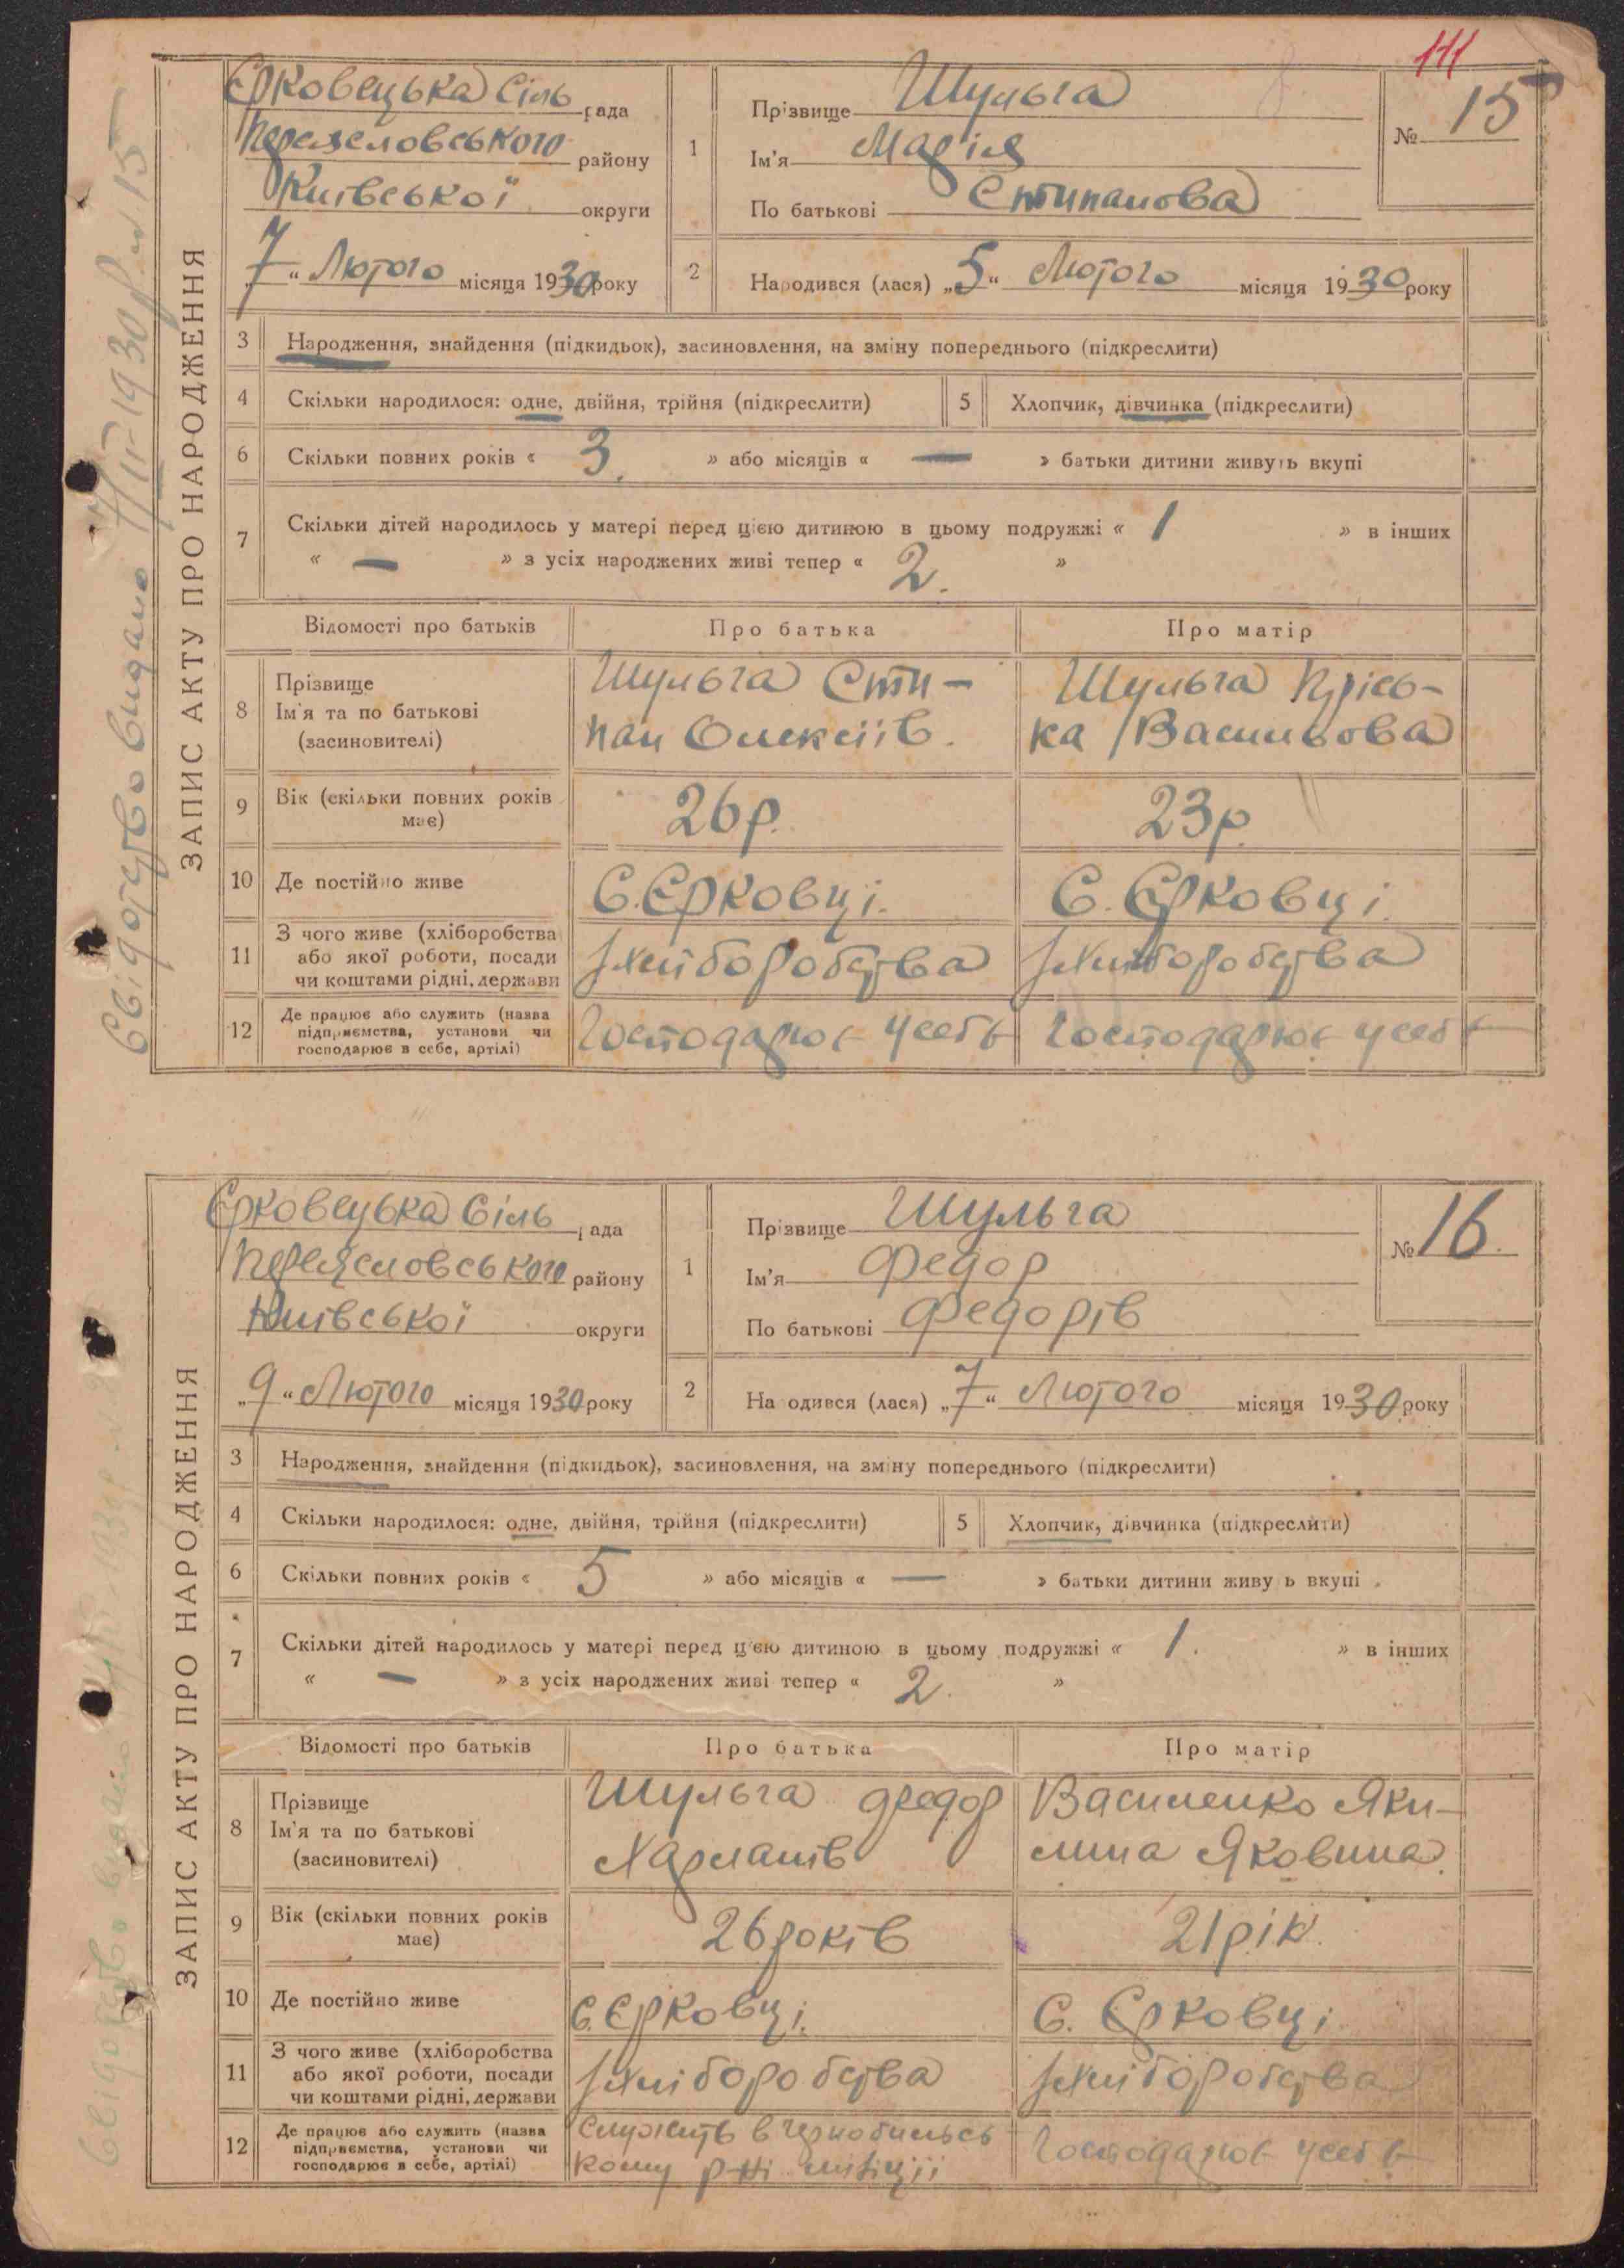 111
ЗАПИС АКТУ ПРО НАРОДЖЕННЯ
Свідоцтво видано 7/II-1930р. № 15
Єрковецька Сіль рада
Переяславського району
Київської округи
7 " Лютого місяця 1930 року
1
Прізвище Шульга
Ім'я Марія
По батькові Стипанова
№ 15
2
Народився (лася) „5“ Лютого місяця 1930 року
3 Народження, знайдення (підкидьок), засиновлення, на зміну попереднього (підкреслити)
4 Скільки народилося: одне, двійня, трійня (підкреслити) 5 Хлопчик, дівчинка (підкреслити)
6 Скільки повних років « 3. » або місяців « — » батьки дитини живуть вкупі
7 Скільки дітей народилось у матері перед цією дитиною в цьому подружжі « 1 » в інших
« — » з усіх народжених живі тепер « 2. »
Відомості про батьків Про батька Про матір
8 Прізвище Ім'я та по батькові (засиновителі)
Шульга Сти-
пан Олексіїв.
Шульга Прісь-
ка Васильова
9 Вік (скільки повних років має) 26р. 23р.
10 Де постійно живе С. Єрковці. С. Єрковці.
11 З чого живе (хліборобства або якої роботи, посади чи коштами рідні, держави
Хліборобства Хліборобства
12 Де працює або служить (назва підприємства, установи чи господарює в себе, артілі)
Господарює у себе Господарює у себе
ЗАПИС АКТУ ПРО НАРОДЖЕННЯ
Свідоцтво видано
Єрковецька Сіль рада
Переясловського району
Київської округи
„9“ Лютого місяця 1930 року
1
Прізвище Шульга
Ім'я Федор
По батькові Федорів
№ 16.
2
На одився (лася) „7“ Лютого місяця 1930 року
3 Народження, знайдення (підкидьок), засиновлення, на зміну попереднього (підкреслити)
4 Скільки народилося: одне, двійня, трійня (підкреслити) 5 Хлопчик, дівчинка (підкреслити)
6 Скільки повних років « 5 » або місяців « — » батьки дитини живу ь вкупі
7 Скільки дітей народилось у матері перед цією дитиною в цьому подружжі « 1. » в інших
« — » з усіх народжених живі тепер « 2. »
Відомості про батьків Про батька Про матір
8 Прізвище Ім'я та по батькові (засиновителі)
Шульга Федор
Харлатів
Василенко Яки-
лина Яковина.
9 Вік (скільки повних років має) 26 років 21 рік.
10 Де постійно живе С. Єрковці. С. Єрковці.
11 З чого живе (хліборобства або якої роботи, посади чи коштами рідні, держави
Хліборобства Хліборобства
12 Де працює або служить (назва підприємства, установи чи господарює в себе, артілі)
Служить в Чернобильсь
кому р-ні міліції
Господарює у себе